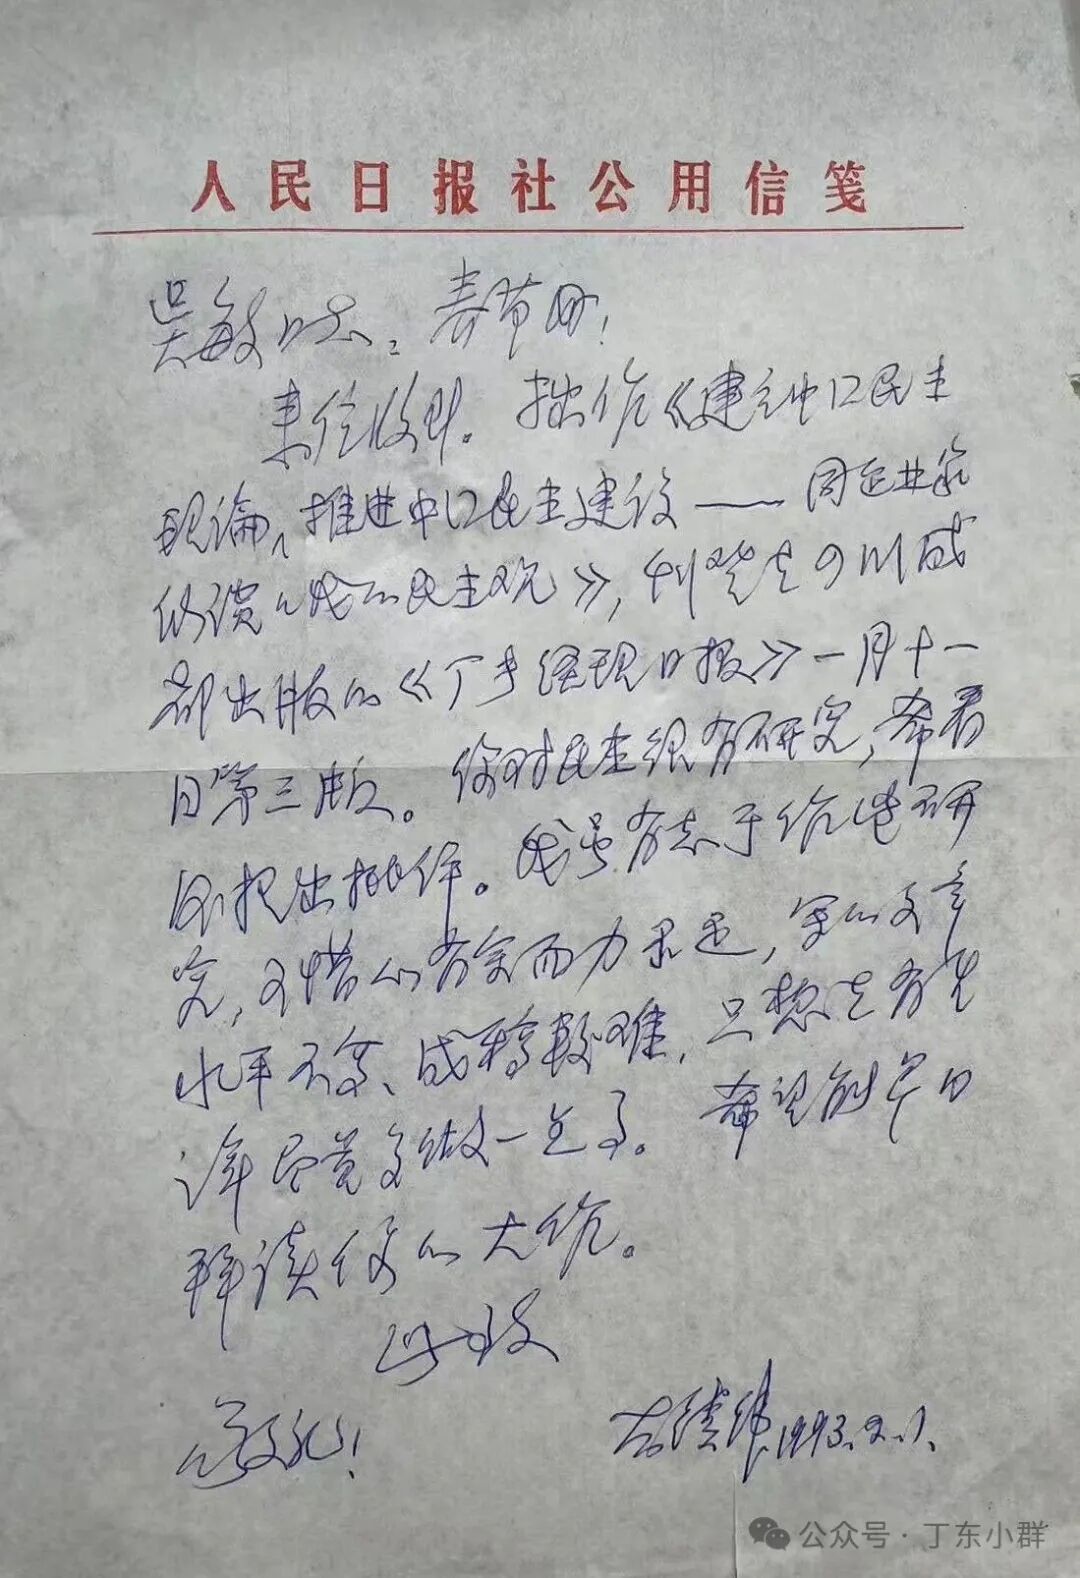 人民日报社公用信笺
吴敏同志：春节好！
来信收到。拙作《建立中囗民主
理论、推进中囗民主建设——同企业家
们谈我的民主观》，刊登在四川成
都出版的《厂长经理日报》一月十一
日第三版。你对民主很有研究，希看
后提出批评。我虽有志于作些研
究，可惜心有余而力不足，写的文章
水平不高、成稿较难，只想在有生
之年尽量多做一点事。希望能早日
拜读你的大作。
此致
敬礼！
胡绩伟 1993.2.1.
公众号·丁东小群